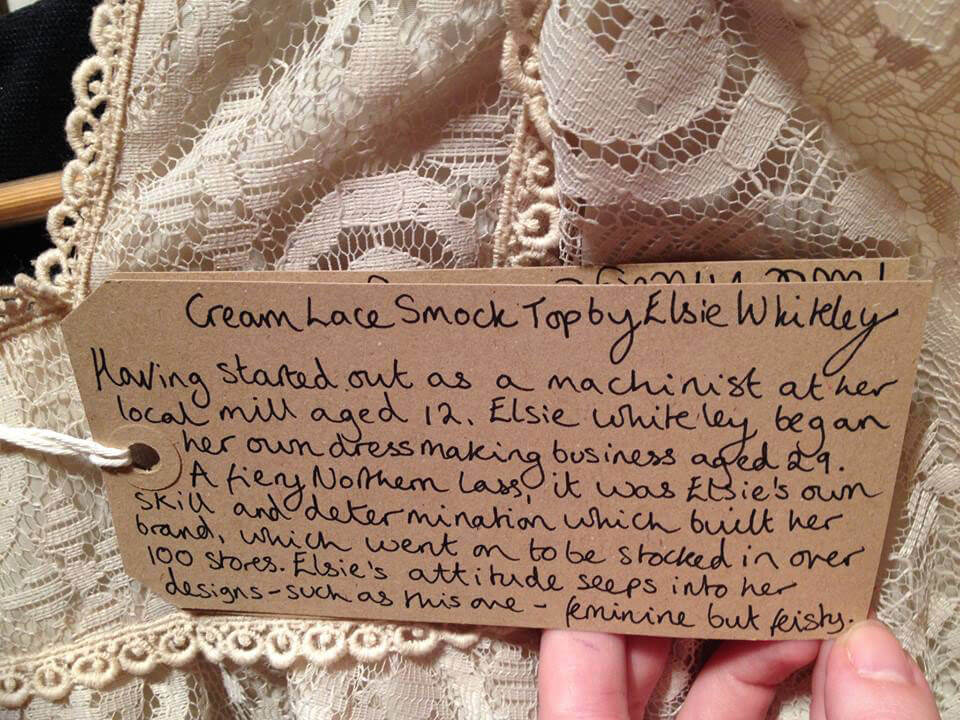 Cream Lace Smock Top by Elsie Whiteley
Having started out as a machinist at her
local mill aged 12, Elsie Whiteley began
her own dressmaking business aged 29.
A fiery Northern Lass, it was Elsie's own
skill and determination which built her
brand, which went on to be stocked in over
100 stores. Elsie's attitude seeps into her
designs - such as this one - feminine but feisty.